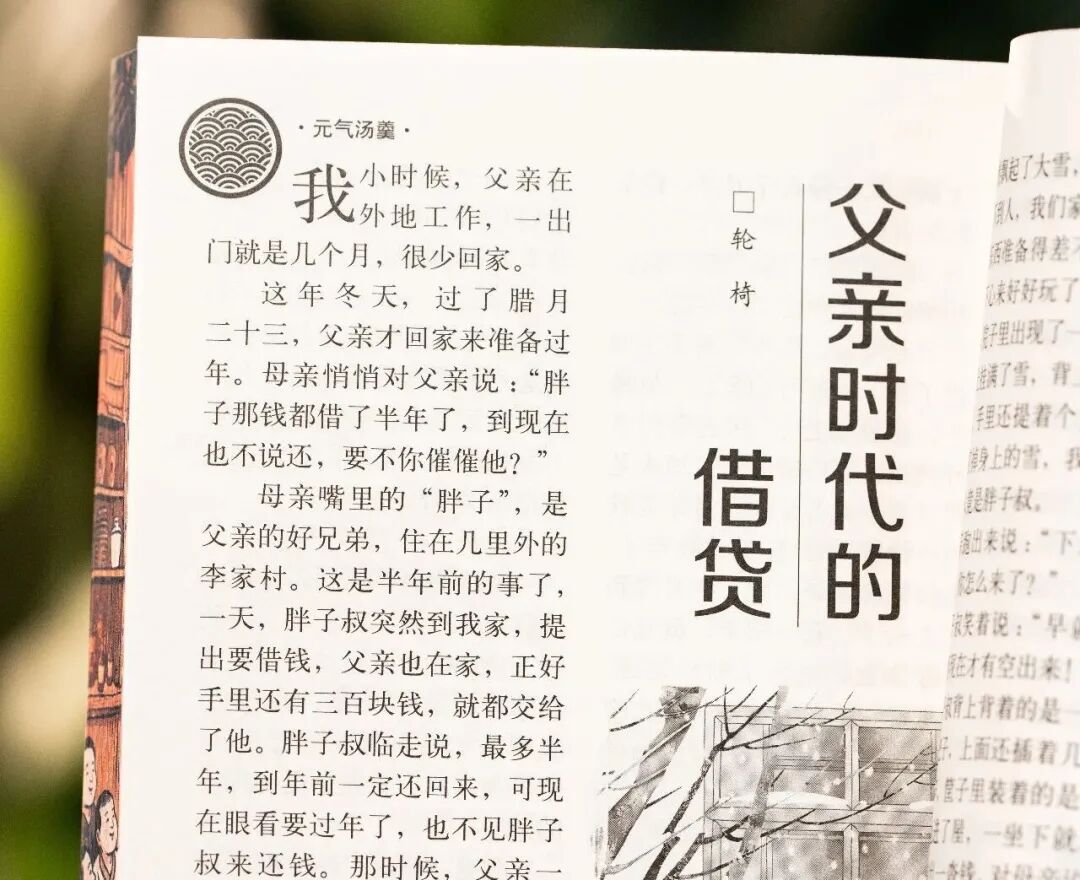 ·元气汤羹·
父亲时代的
借贷
□轮椅
我小时候，父亲在
外地工作，一出
门就是几个月，很少回家。
这年冬天，过了腊月
二十三，父亲才回家来准备过
年。母亲悄悄对父亲说：“胖
子那钱都借了半年了，到现在
也不说还，要不你催催他？”
母亲嘴里的“胖子”，是
父亲的好兄弟，住在几里外的
李家村。这是半年前的事了，
一天，胖子叔突然到我家，提
出要借钱，父亲也在家，正好
手里还有三百块钱，就都交给
了他。胖子叔临走说，最多半
年，到年前一定还回来，可现
在眼看要过年了，也不见胖子
叔来还钱。那时候，父亲一
飘起了大雪，
别人，我们家
西准备得差不
心来好好玩了
院子里出现了一
挂满了雪，背上
手里还提着个
掉身上的雪，我
竟是胖子叔。
跑出来说：“下
你怎么来了？”
叔笑着说：“早就
现在才有空出来！
叔背上背着的是一
子，上面还插着几
筐子里装着的是
进了屋，一坐下就